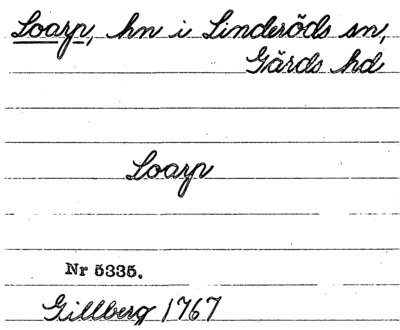 Loarp, hn i Linderöds sn,
Gärds hd
Loarp
Nr 5335.
Gillberg 1767